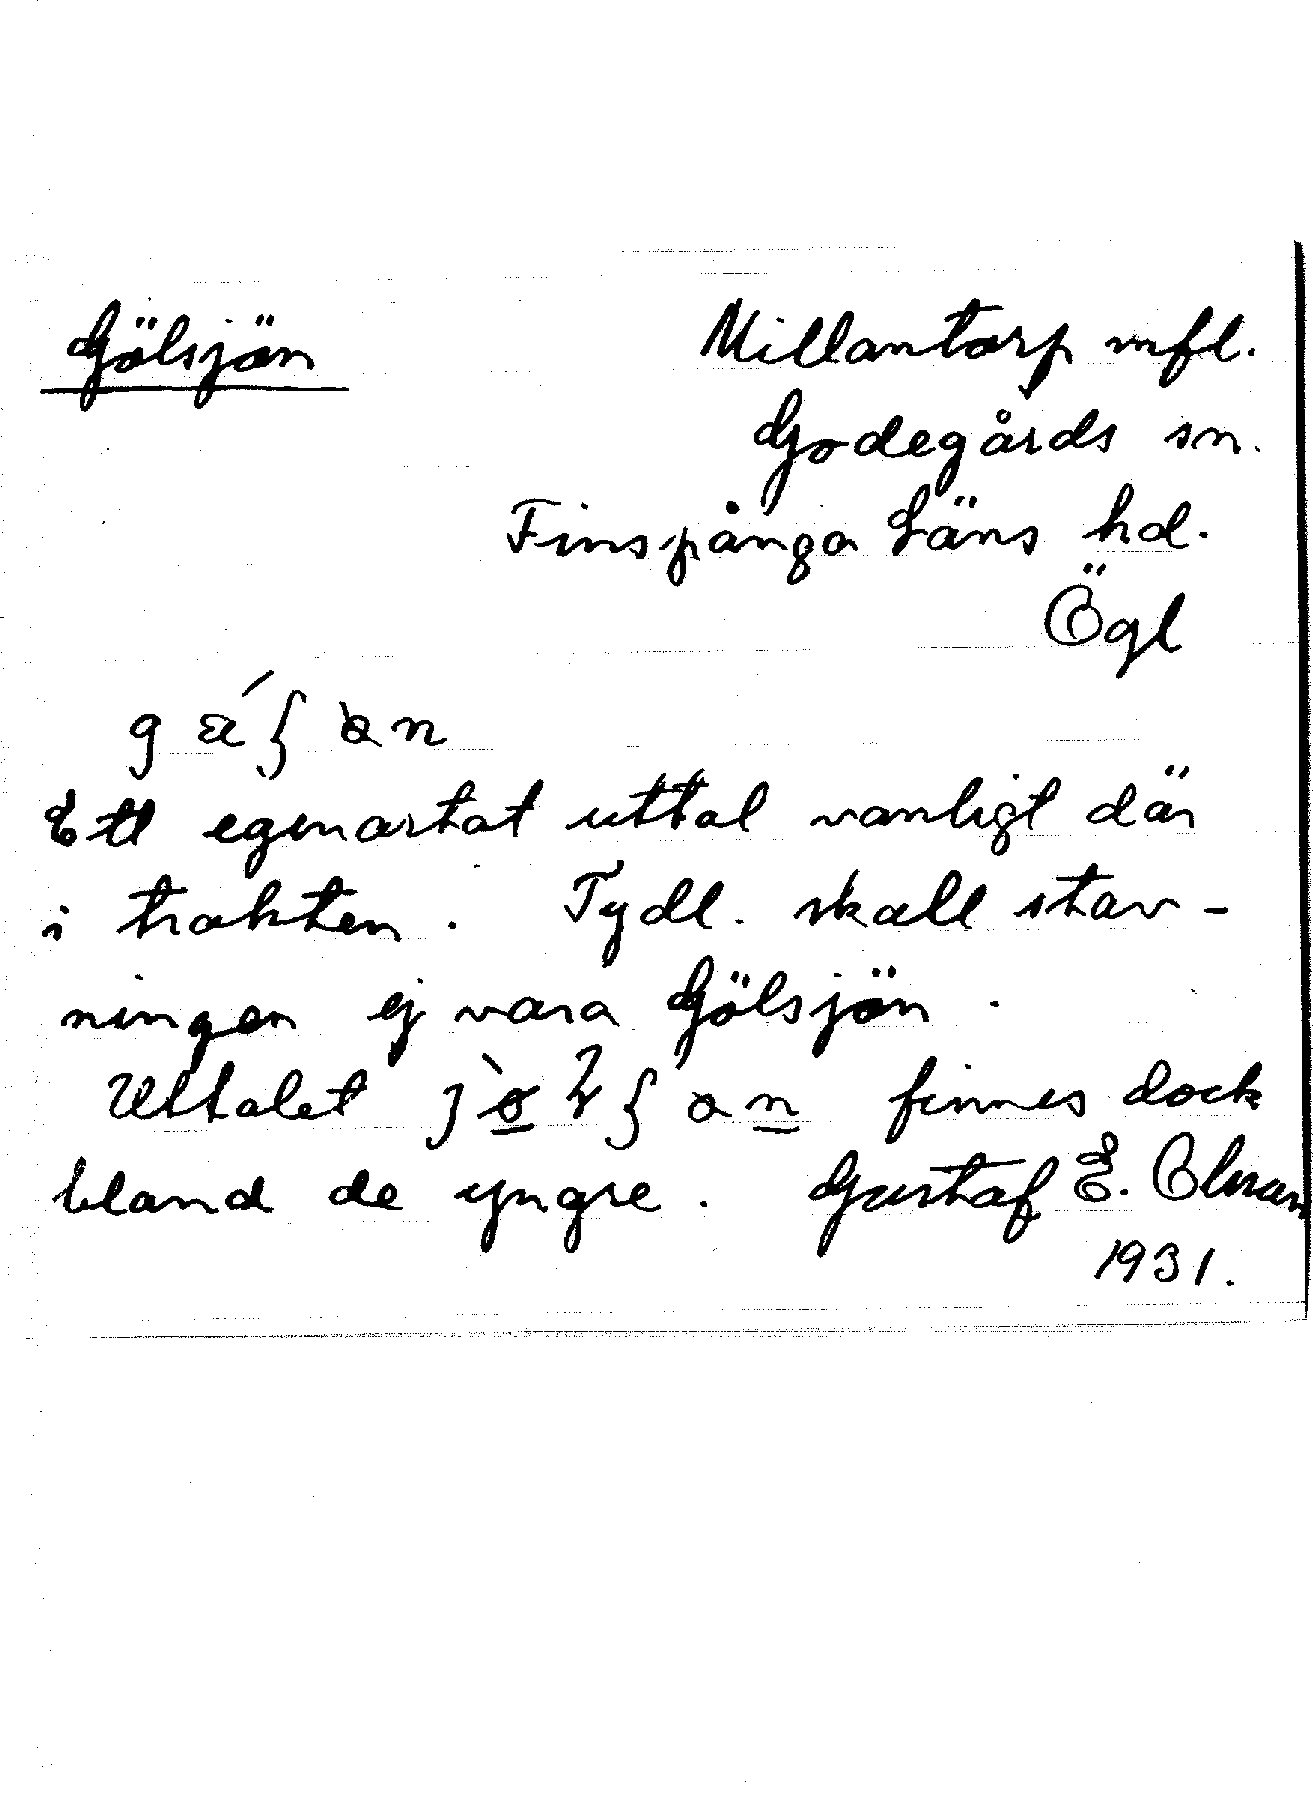 Gölsjön
Millantorp mfl.
Godegårds sn.
Finspånga Läns hd.
Ögl
Ett egenartat uttal vanligt där
i trakten. Tydl. skall stav-
ningen ej vara Gölsjön.
Uttalet finnes dock
bland de yngre. Gustaf E.
1931.